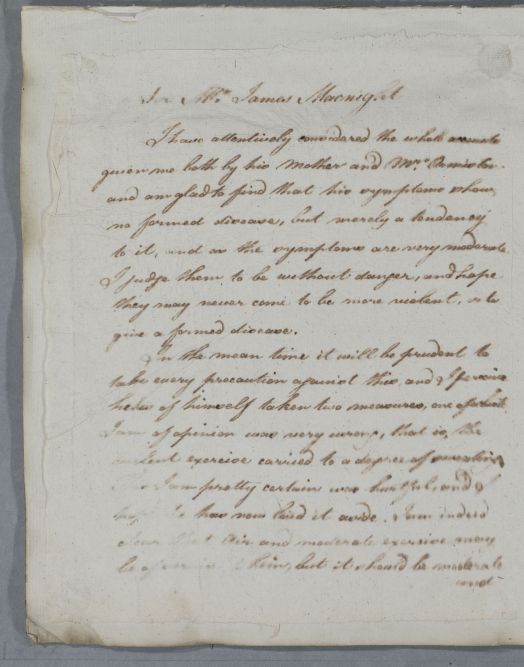 For Mr. James Macnight
I have attentively considered the whole accounts
given me both by his Mother and Mrs.
and am glad to find that his symptoms show
no formed disease, but merely a tendency
to it, and as the symptoms are very moderate
I judge them to be without danger, and hope
they may never come to be more violent, or to
give a formed disease.
In the mean time it will be prudent to
take every precaution against this, and I perceive
he has of himself taken two measures, one of which
I am of opinion was very wrong, that is, the
violent exercise carried to a degree of sweating
I am pretty certain was hurtful, and I
hope he has now laid it aside. I am indeed
clear that Air and moderate exercise may
be of service to him, but it should be moderate
and